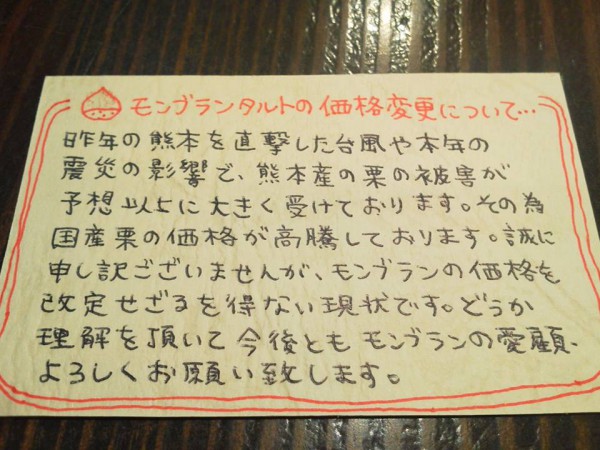 モンブランタルトの価格変更について…
昨年の熊本を直撃した台風や本年の
震災の影響で、熊本産の栗の被害が
予想以上に大きく受けております。その為
国産栗の価格が高騰しております。誠に
申し訳ございませんが、モンブランの価格を
改定せざるを得ない現状です。どうか
理解を頂いて今後ともモンブランの愛顧、
よろしくお願い致します。